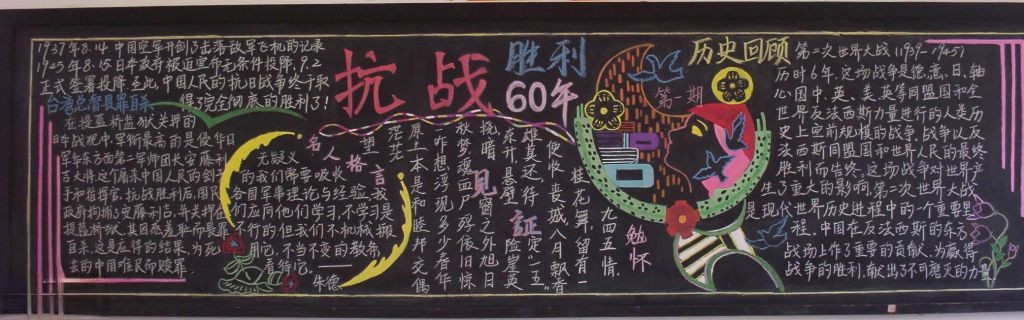 1937年8.14 中国空军开创了击落敌军飞机的记录
1945年8.15日本政府被迫宣布无条件投降,9.2
正式签署投降.至此,中国人民的抗日战争终于取
得了完全彻底的胜利了!
台湾总督畏罪自杀
在提蓝桥监狱关押的
日本战犯中,军衔最高的是侵华日
军华东方面第二军师团长安藤利
吉大将这个屠杀中国人民的刽子
手和指挥官,抗战胜利后,国民
政府拘捕了安藤利吉,并关押在
提蓝桥狱,其因惹羞耻而畏罪
自杀.这是应得的结果,为死
去的中国难民而赎罪
抗战
胜利
60年
名人格言
无疑义
的我们都要吸收
各国军事理论与经验,我
们应同他们学习,不学习是
不行的但我们不机械搬
用它,不当不变的教条,
看待它.
朱德
望
茫茫
原土本是和睦师交偶
昨想浮现多少春华
秋梦魂血尸殍依旧惊
晓暗
见
窗之外旭日
来升悬壁
証
险崖英
雄莫还,待定"二五"
便收丧城八月飘香
桂花舞,留有一
九四五情.
勉怀
历史回顾
第一期
第二次世界大战(1939-1945)
历时6年,这场战争是德.意、日、轴
心国中、英、美、英等同盟国和全
世界反法西斯力量进行的人类历
史上空前规模的战争,战争以反
法西斯同盟国和世界人民的最终
胜利而告终.这场战争对世界产
生了重大的影响.第二次世界大战
是现代世界历史进程中的一个重要里
程,中国在反法西斯的东方
战场上作了重要的贡献、为赢得
战争的胜利,献出了不可磨灭的力量